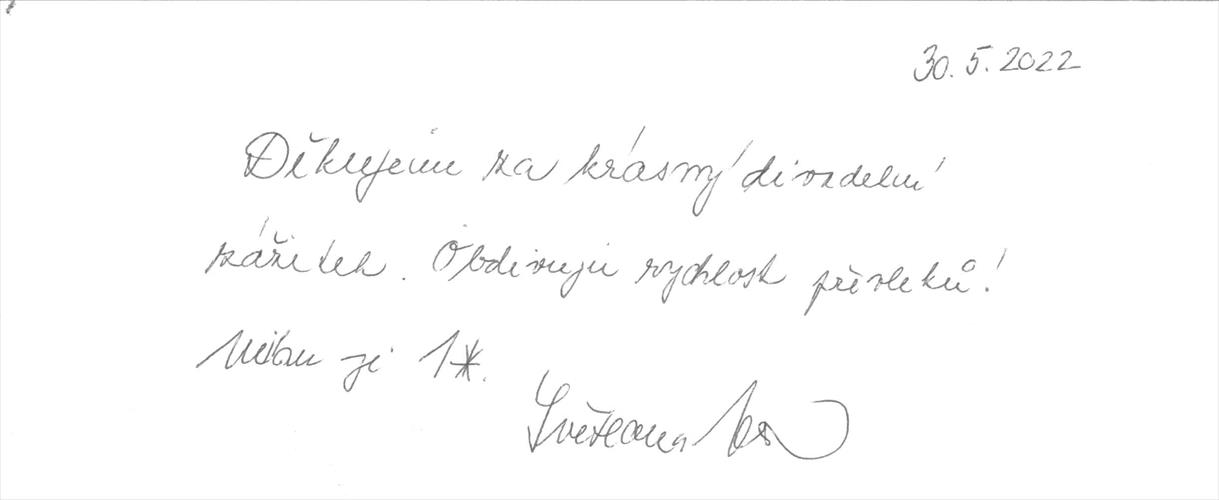 30. 5. 2022
Děkujeme za krásný divadelní
zážitek. Obdivuji rychlost převleků!
je 1*.
Světlana